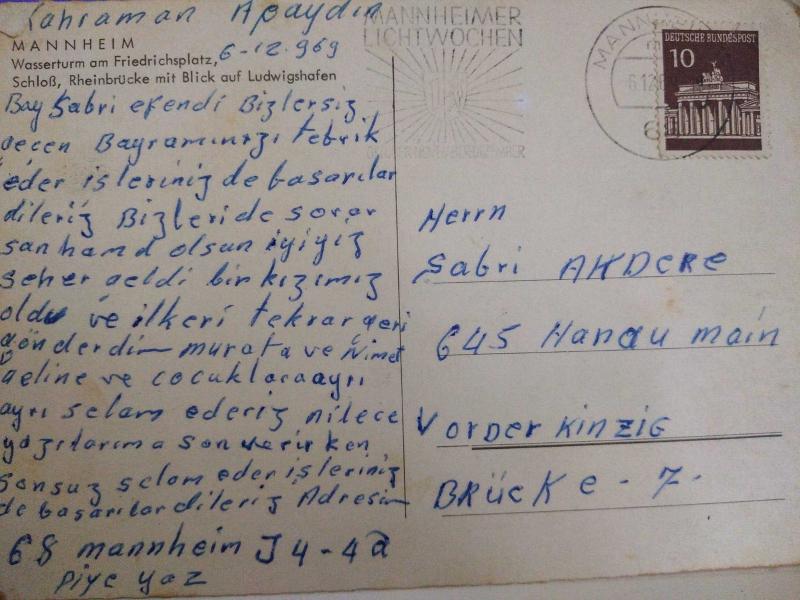 Kahraman Apaydın
MANNHEIM
Wasserturm am Friedrichsplatz,
Schloß, Rheinbrücke mit Blick auf Ludwigshafen
6-12.969
MANNHEIMER
LICHTWOCHEN
MANNH
6.12.6
DEUTSCHE BUNDESPOST
10
Bay Sabri efendi Bizlersiz
gecen Bayramınızı tebrik
eder isleriniz de basarılar
dileriz Bizleride sorar
san hamd olsun iyiyiz
seher geldi bir kızımız
oldu ve ilkeri tekrar geri
gönderdim murata ve Nimet
geline ve cocuklara ayrı
ayrı selam ederiz
yazılarıma son verirken
sonsuz selam eder isleriniz
de basarılar dileriz Adresim
68 mannheim J4-4a
piye yaz
Herrn
Sabri AKDERE
645 Hanau main
Vorder KinZIG
BRücKe - 7-